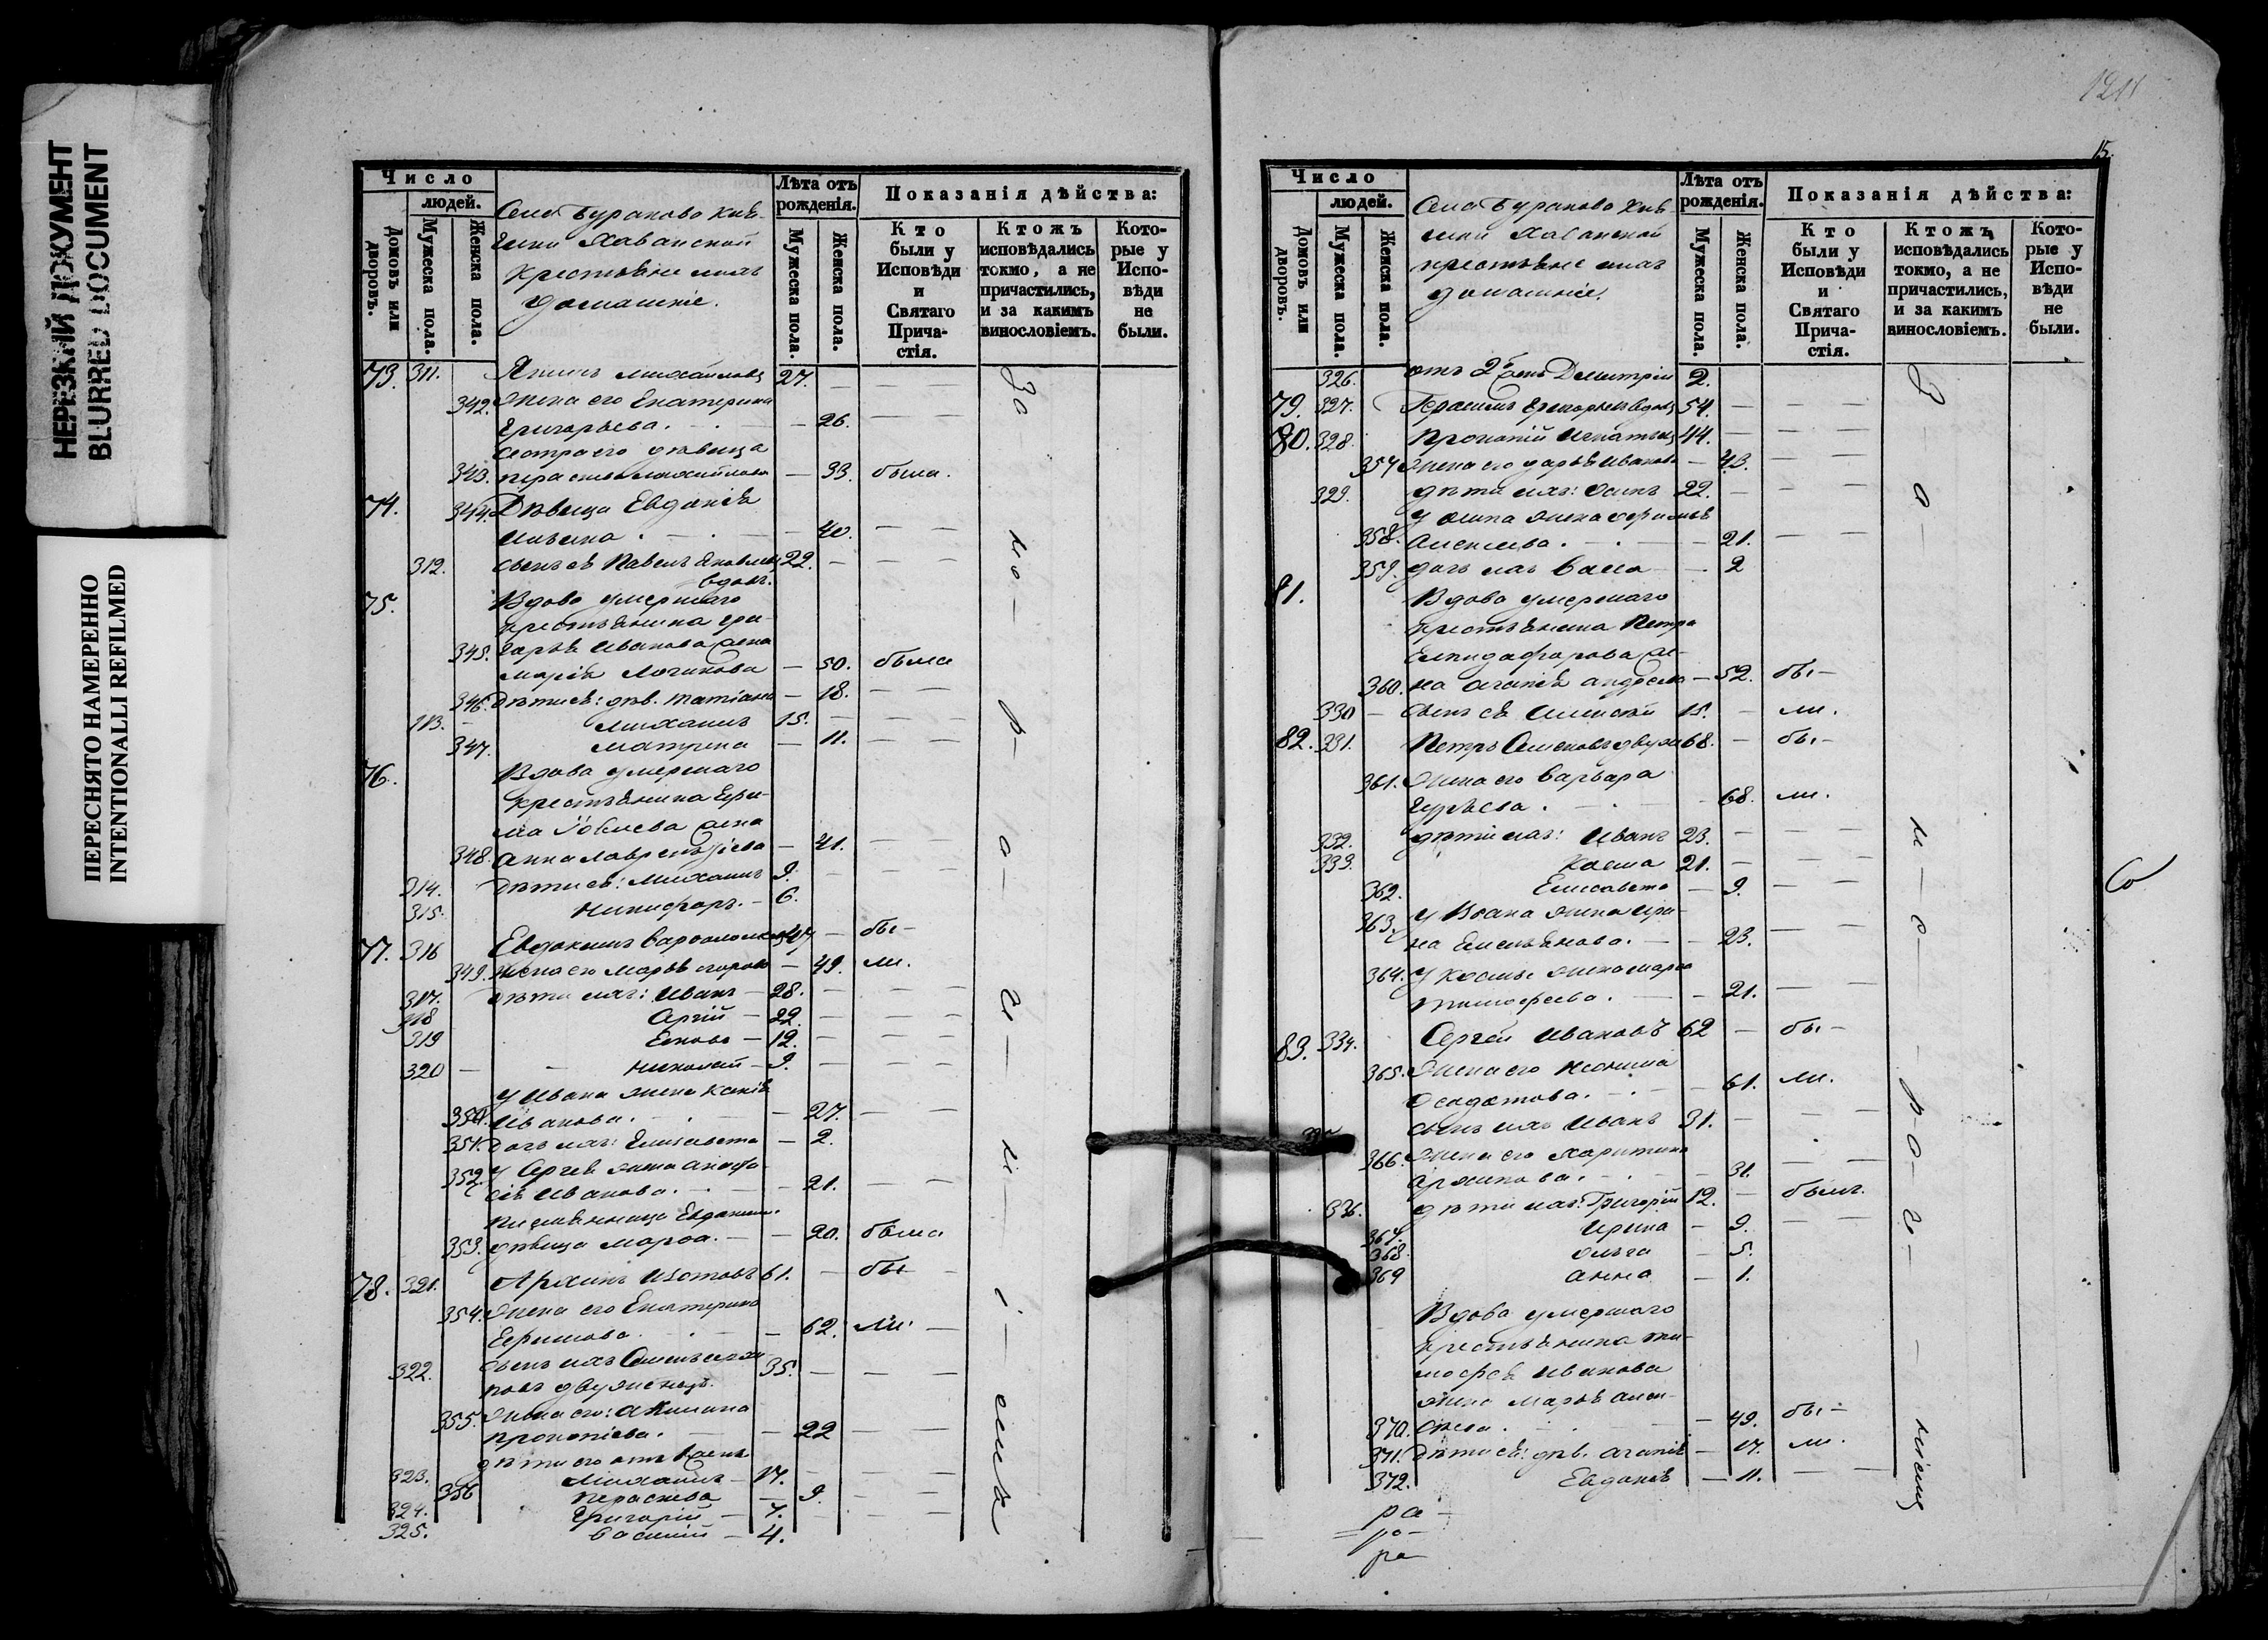 НЕРЕЗКИЙ ДОКУМЕНТ
BLURRED DOCUMENT
ПЕРЕСНЯТО НАМЕРЕННО
INTENTIONALLI REFILMED
Число
людей.
Домовъ или дворовъ.
Мужеска пола.
Женска пола.
Села Бураково Кня-
гини Хованской
крестьяне ихъ
домашніе.
Лѣта отъ рожденія.
Мужеска пола.
Женска пола.
Показанія дѣйства:
Кто были у Исповѣди и Святаго Прича-стія.
Ктожъ исповѣдались токмо, а не причастились, и за какимъ винословіемъ.
Кото-рые у Испо-вѣди не были.
73. 311. Михайловъ 27. — —
342. Жена его Екатерина
Григорьева. — 26. — —
сестра его дѣвица
343. Параскева Михайлова — 33. была.
74. 344. Дѣвица Евдокія
Ильина — 40. — —
312. сынъ ея Павелъ Яковлевъ 22. — — —
вдовъ.
75. Вдова умершаго
крестьянина Гри-
345. горья Иванова жена
Марія Логинова — 50. была
346. Дѣти ея: дѣв. Татіана — 18. — —
313. — Михаилъ 15. — — —
347. Матрена — 11. — —
76. Вдова умершаго
крестьянина Ефи-
ма Іовлева жена
348. Анна Лаврентьева — 41. — —
314. Дѣти ея: Михаилъ 9. — — —
315. Никифоръ. — 6.
77. 316 Евдокимъ Варфоломеевъ 47 — бы —
349. жена его Марья Егорова — 49. ли.
317. дѣти ихъ: Иванъ — 28. — — —
318 Сергій — 22. — — —
319 — 12. — — —
320 — — Николай — 9. — — —
У Ивана жена Ксенія
350. Иванова. — 27. — —
351. дочь ихъ: Елисавета — 2.
352. У Сергея жена Анаста-
сія Иванова. — 21. — —
племянница Евдокима
353. дѣвица Марфа. — — 20. была
78. 321. Архипъ Изотовъ 61. — бы —
354. Жена его Екатерина
Ефимова — 62. ли —
322. сынъ ихъ Семенъ Архи-
повъ двуженецъ. 35. — — —
355. Жена его: Акилина
Прокопіева. — — 22 — —
дѣти его отъ 1 жены
323. Михаилъ — 17. — — —
356 Параскева — 9. — —
324. Григорій — 7. — — —
325. Василій — 4.
За мо-р-а-г-и-і-емъ
1211
15.
Число
людей.
Домовъ или дворовъ.
Мужеска пола.
Женска пола.
Села Бураково Кня-
гини Хованской
крестьяне ихъ
домашніе.
Лѣта отъ рожденія.
Мужеска пола.
Женска пола.
Показанія дѣйства:
Кто были у Исповѣди и Святаго Прича-стія.
Ктожъ исповѣдались токмо, а не причастились, и за какимъ винословіемъ.
Кото-рые у Испо-вѣди не были.
326. отъ 2й жены Димитрій 2.
79. 327. Герасимъ Григорьевъ вдовъ 54. — — —
80. 328. Прокопій Игнатьевъ 44. — — —
357 Жена его Дарья Иванова — 43. — —
329. дѣти ихъ: Осипъ 22. — — —
У Осипа жена Ефимья
358. Алексеева. — 21. — —
359. дочь ихъ Васса — 2
81. Вдова умершаго
крестьянина Петра
Елпидифорова же-
360. на Агапія Андреева — 52. бы —
330 — сынъ ея Алексѣй 15. — ли.
82. 331. Петръ Семеновъ двужен 68. — бы —
361. Жена его Варвара
Гурьева. — 68. ли.
332. дѣти ихъ: Иванъ 23. — — —
333. Косма 21. — — —
362. Елисавета — 9. — —
363. У Ивана жена Ири-
на Емельянова. — — 23. — —
364. У Космы жена Марфа
Тимофеева. — — 21. — —
83. 334. Сергей Ивановъ 62 — бы —
365. Жена его Неонила
Феодотова. — 61. ли.
335 сынъ ихъ Иванъ 31. — — —
366. Жена его Харитина
Архипова. — 31. — —
336. дѣти ихъ: Григорій 12. — былъ.
367. Ирина — 9. — —
368. Ольга — 5.
369 Анна — 1.
Вдова умершаго
крестьянина Ти-
мофея Иванова
жена Марья Алек-
370. сеева. — 49. бы —
371. Дѣти ея: дѣв. Агапія — 17. ли.
372. Евдокія — 11. — —